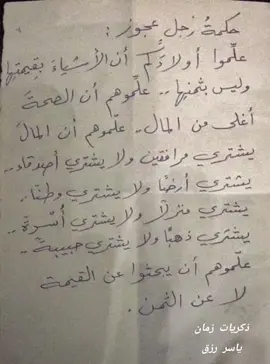 حكمةُ رَجل عجوز :
علّموا أولادَكُم أن الأشياءَ بقيمتها
وليس بثمنها .. علّموهم أن الصحة
أغلى من المال .. علّموهم أن المالَ
يشتري مرافقين ولا يشتري أصدقاء ..
يشتري أرضًا ولا يشتري وطنًا ..
يشتري منزلًا ولا يشتري أُسْرة ..
يشتري ذهبًا ولا يشتري حبيبة ..
علّموهم أن يبحثوا عن القيمة
لا عن الثمن .
ذكريات زمان
ياسر رزق